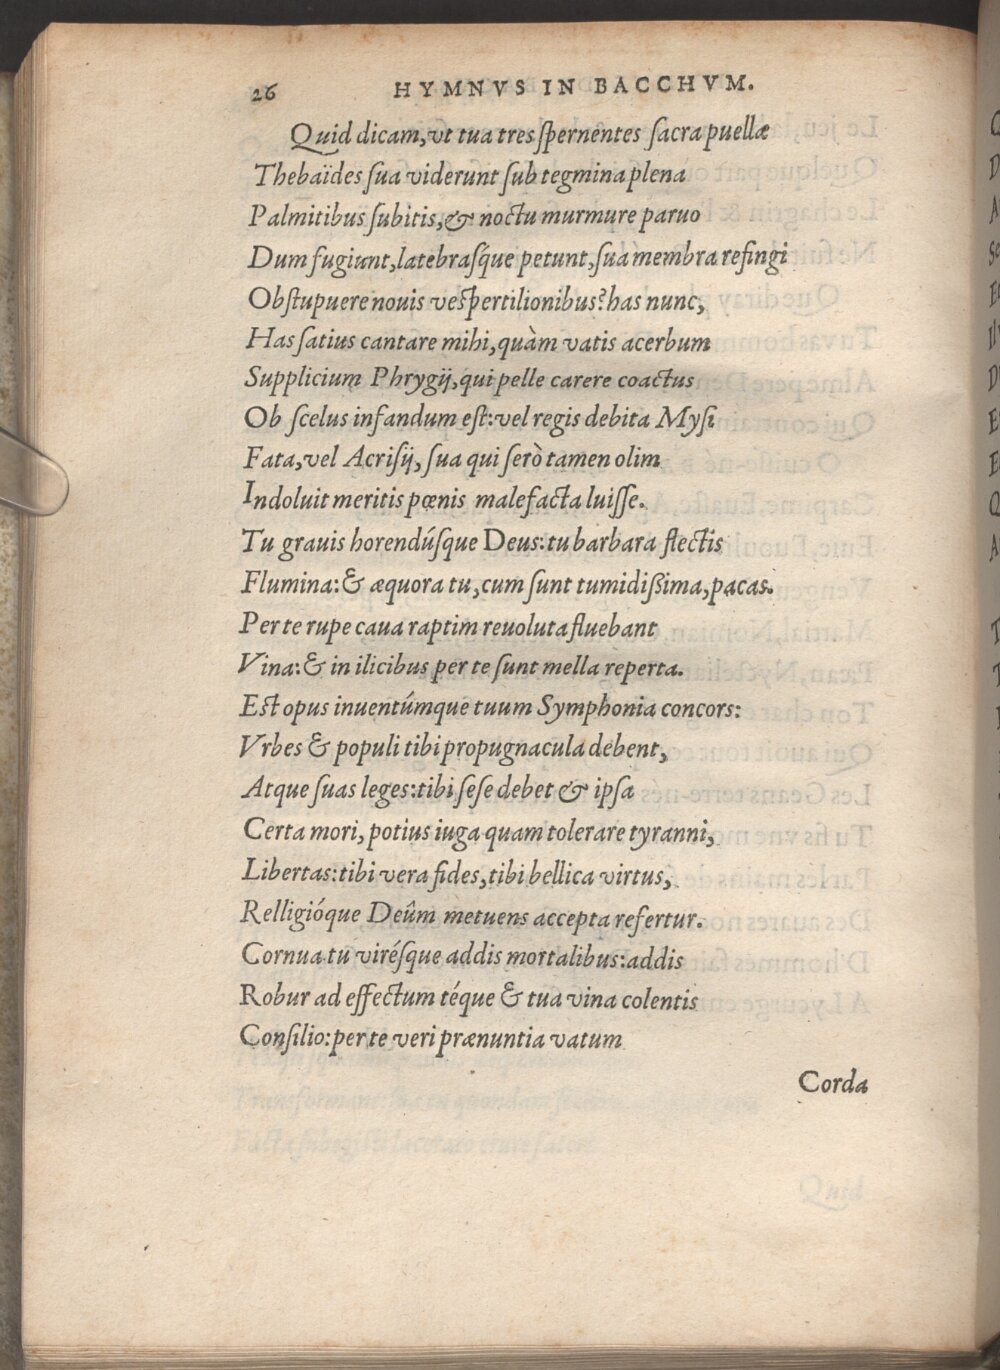 26 HYMNVS IN BACCHVM.
Quid dicam, vt tua tres ſpernentes ſacra puellæ
Thebaïdes ſua viderunt ſub tegmina plena
Palmitibus ſubitis, & noctu murmure paruo
Dum fugiunt, latebraſq́ue petunt, ſua membra refingi
Obſtupuere nouis veſpertilionibus? has nunc,
Has ſatius cantare mihi, quàm vatis acerbum
Supplicium Phrygij, qui pelle carere coactus
Ob ſcelus infandum eſt: vel regis debita Myſi
Fata, vel Acriſij, ſua qui ſerò tamen olim
Indoluit meritis pœnis malefacta luiſſe.
Tu grauis horendúſque Deus: tu barbara flectis
Flumina: & æquora tu, cum ſunt tumidißima, pacas.
Per te rupe caua raptim reuoluta fluebant
Vina: & in ilicibus per te ſunt mella reperta.
Eſt opus inuentúmque tuum Symphonia concors:
Vrbes & populi tibi propugnacula debent,
Atque ſuas leges: tibi ſeſe debet & ipſa
Certa mori, potius iuga quam tolerare tyranni,
Libertas: tibi vera fides, tibi bellica virtus,
Relligióque Deûm metuens accepta refertur.
Cornua tu viréſque addis mortalibus: addis
Robur ad effectum téque & tua vina colentis
Conſilio: per te veri prænuntia vatum
Corda